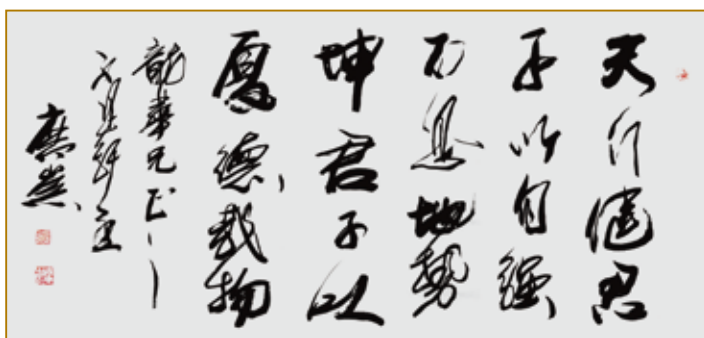 天行健君
子以自强
不息地势
坤君子以
厚德载物
龍華兄正之